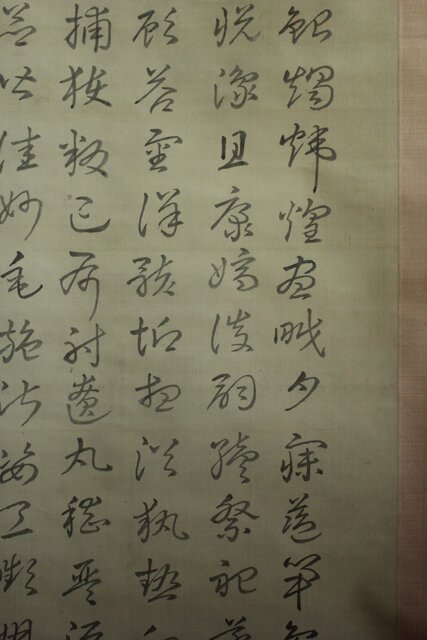 銀燭煒煌晝眠夕寐藍筍
悅豫且康嫡後嗣續祭祀
顧答審詳骸垢想浴執熱
捕獲叛亡布射遼丸嵇琴
並皆佳妙毛施淑姿工顰